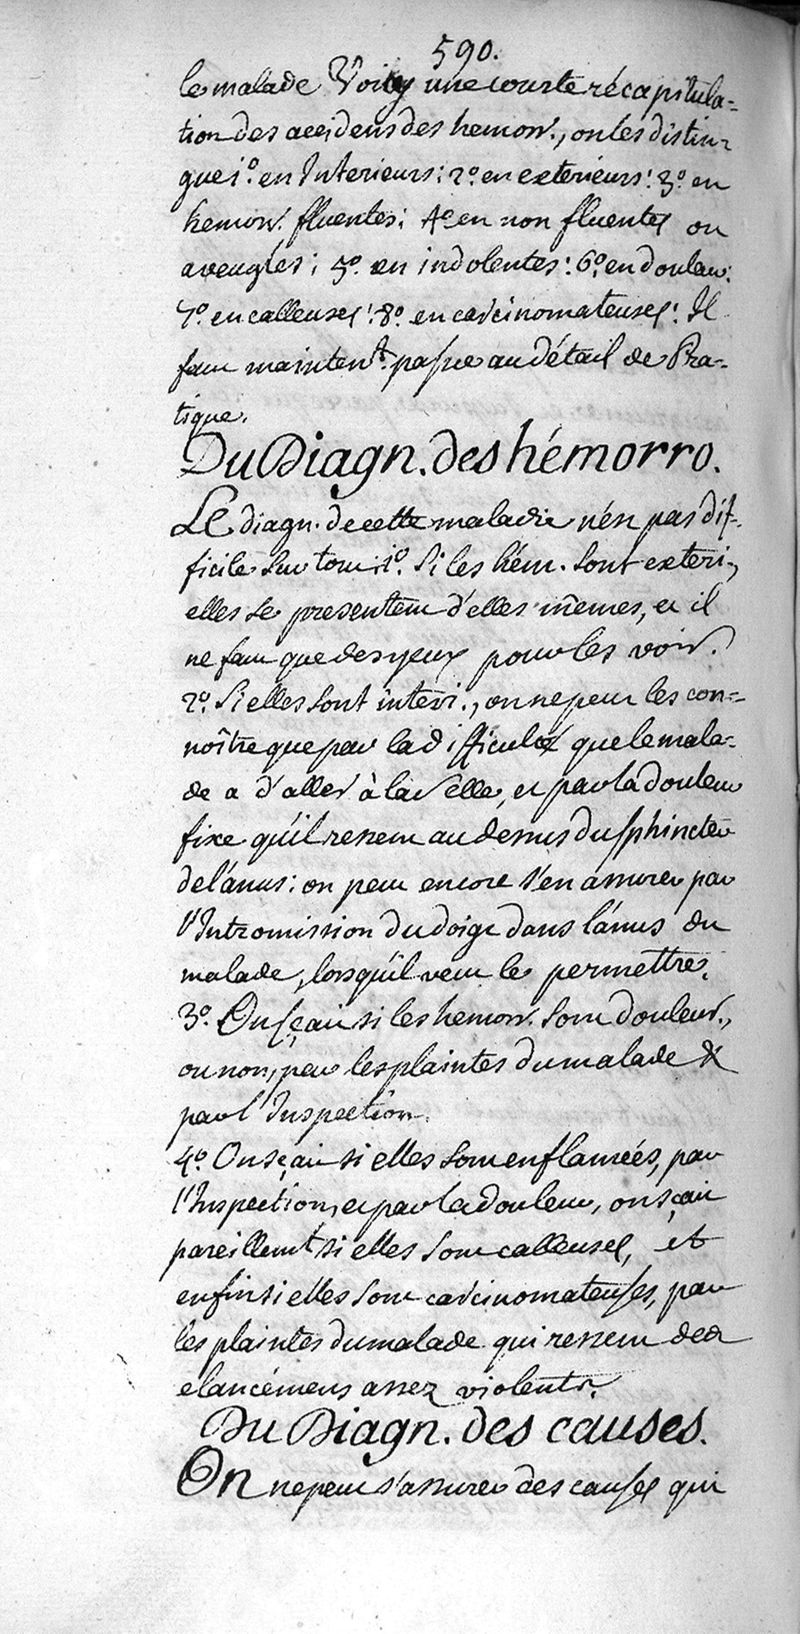 590.
le malade Voicy une courte récapitula=
tion des accidens des hemorr., on les distin-
gue 1º. en Interieurs: 2º. en exterieurs: 3º. en
hemorr. fluentes; 4º en non fluentes ou
aveugles; 5º. en indolentes: 6º. en douleur:
7º. en calleuses: 8º. en carcinomateuses: Il
faut maintent. passer au détail de Pra-
tique.
Du Diagn. des hémorro.
Le diagn. de cette maladie n'est pas dif-
ficile sur tout: 1º. Si les hém. sont exteri.,
elles se presentent d'elles mêmes, et il
ne faut que des yeux pour les voir.
2º. Si elles sont interi., on ne peut les con=
noître que par la difficulté que le mala-
de a d'aller à la selle, et par la douleur
fixe qu'il ressent au dessus du sphincter
de l'anus: on peut encore s'en assurer par
l'Intromission du doigt dans l'anus du
malade, lorsqu'il veut le permettre.
3º. On sçait si les hemorr. sont douleur.,
ou non, par les plaintes du malade &
par l'Inspection.
4º. On sçait si elles sont enflamées, par
l'Inspection, et par la douleur, on sçait
pareillemt. si elles sont calleuses, et
enfin si elles sont carcinomateuses, par
les plaintes du malade qui ressent des
elancémens assez violents.
Du Diagn. des causes.
On ne peut s'assurer des causes qui